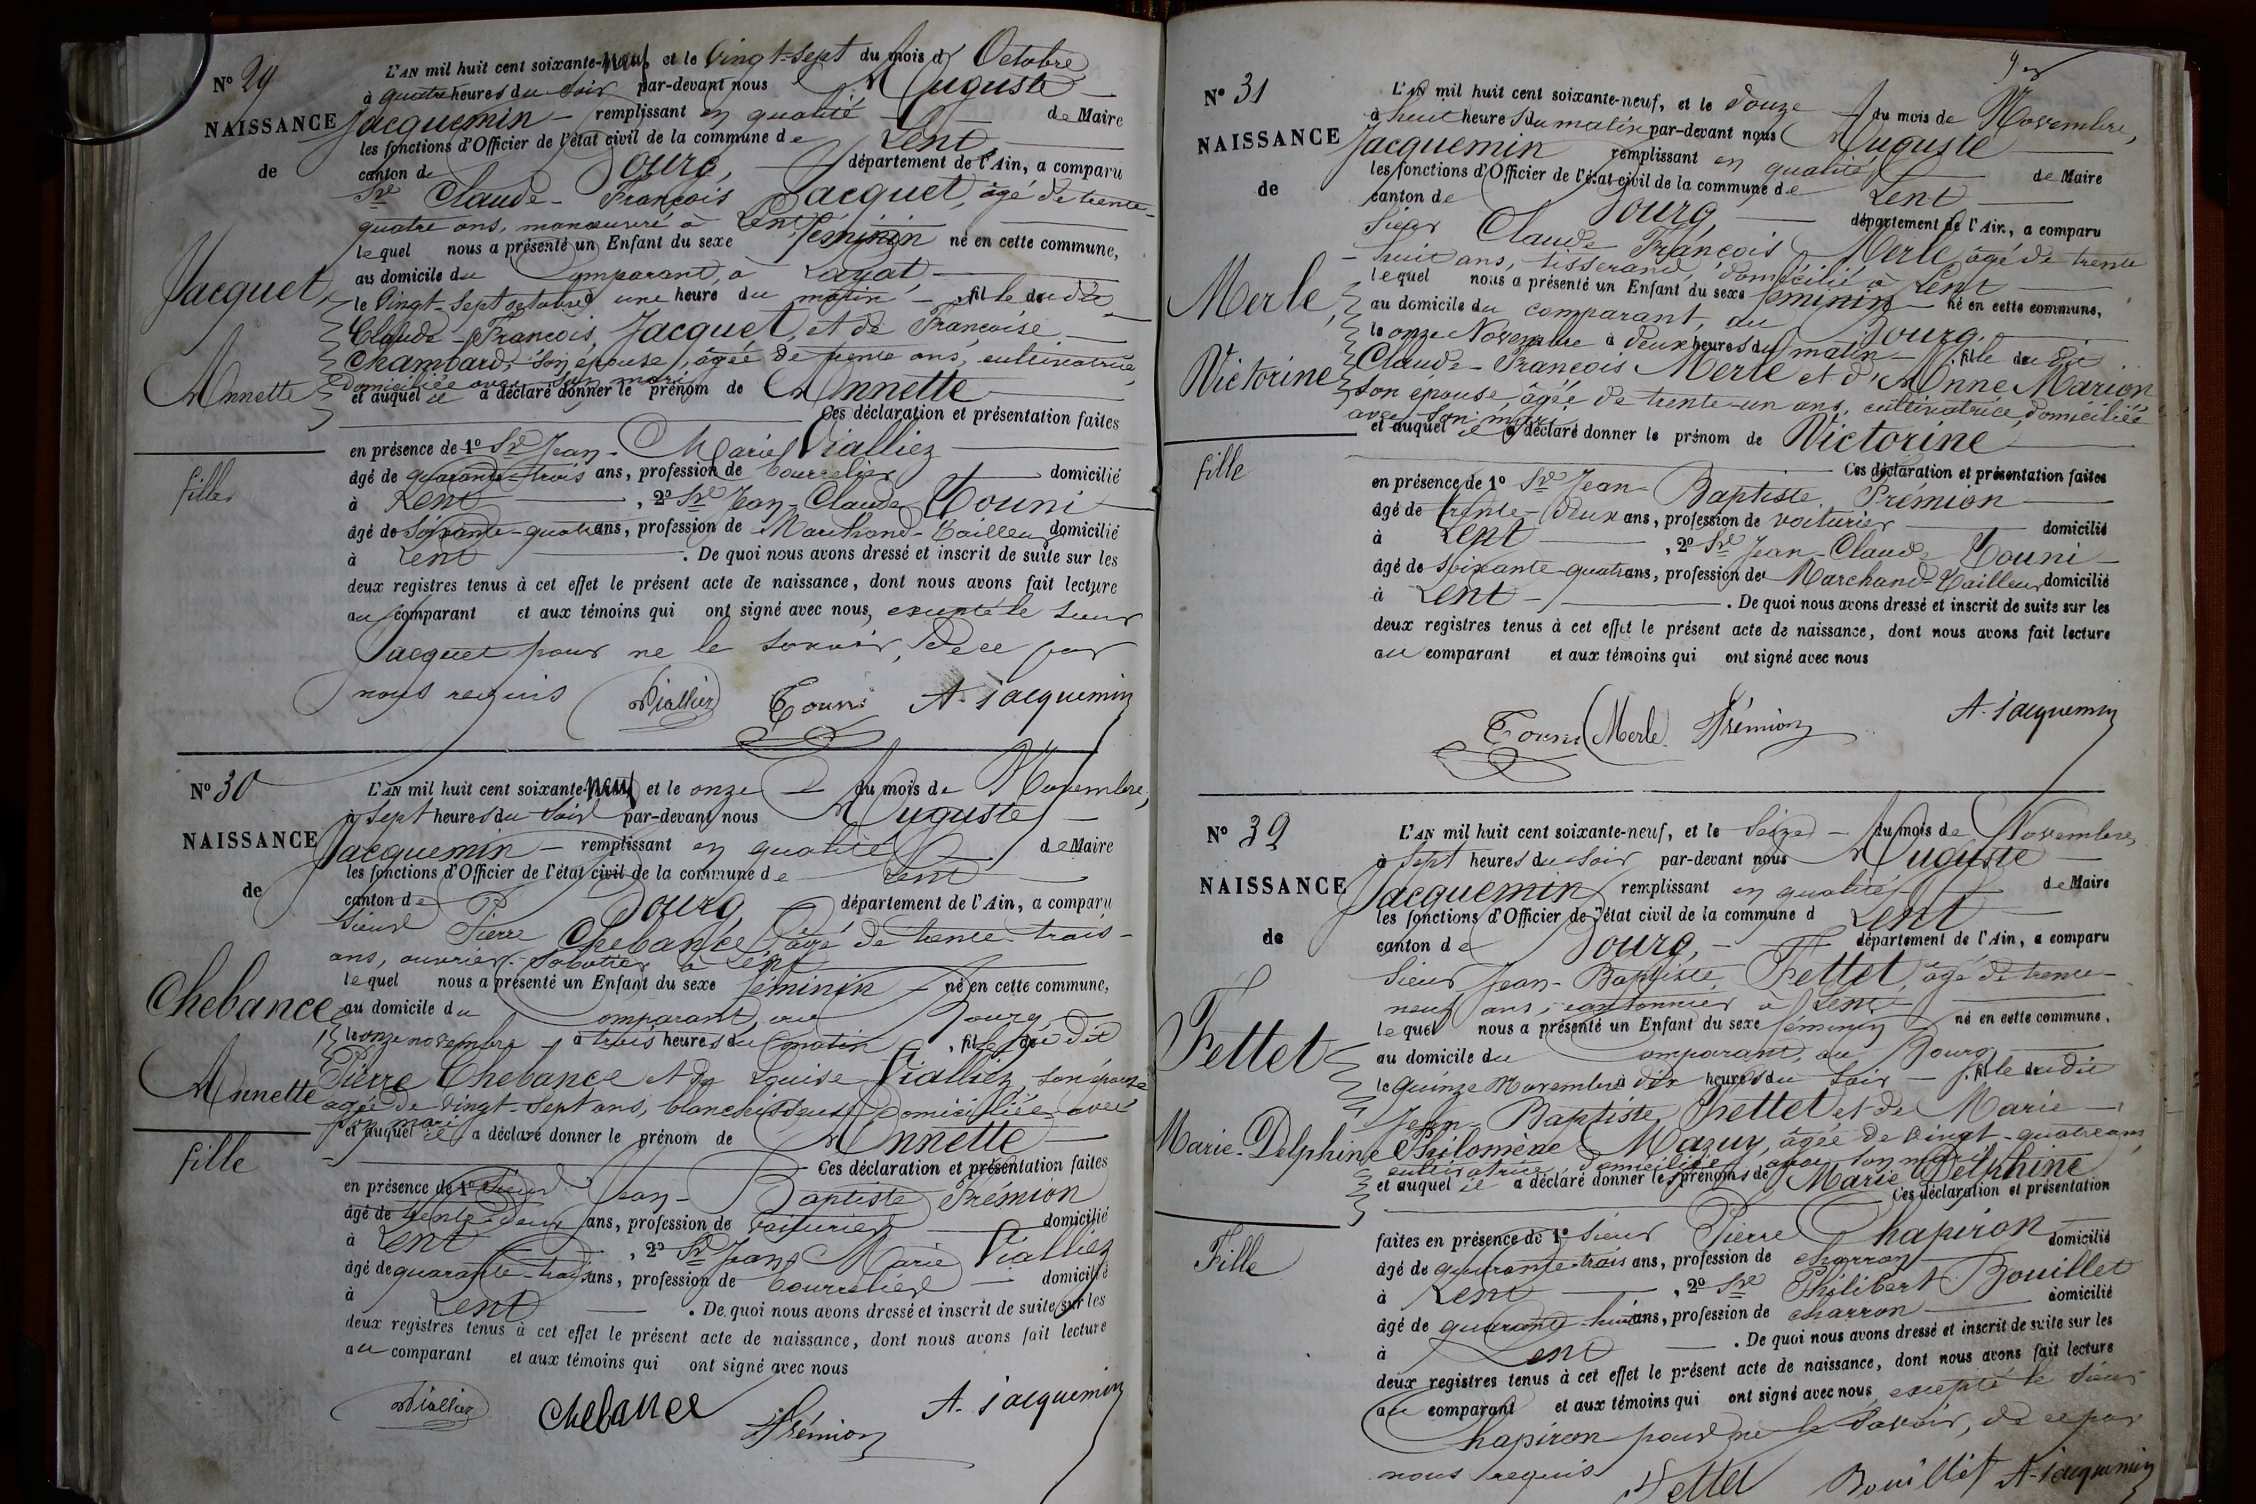 N° 29
NAISSANCE
de
Jacquet,
Annette
fille
L'AN mil huit cent soixante-neuf et le Vingt-sept du mois d' Octobre
à quatre heures du soir par-devant nous Auguste
Jacquemin remplissant en qualité de Maire
les fonctions d'Officier de l'état civil de la commune de Lent
canton de Bourg, département de l'Ain, a comparu
Sr Claude-François Jacquet, âgé de trente-
quatre ans, manœuvre à Lent,
lequel nous a présenté un Enfant du sexe féminin né en cette commune,
au domicile du Comparant, à
le Vingt-sept octobre une heure du matin fille du dit
Claude-François Jacquet, et de Françoise
Chambard, son épouse, âgée de trente ans, cultivatrice,
domiciliée avec son mari
et auquel il a déclaré donner le prénom de Annette
Ces déclaration et présentation faites
en présence de 1° Sr Jean-Marie Vialliez
âgé de quarante-trois ans, profession de bourrelier domicilié
à Lent, 2° Sr Jean-Claude Touni
âgé de soixante-quatre ans, profession de Marchand-Tailleur domicilié
à Lent. De quoi nous avons dressé et inscrit de suite sur les
deux registres tenus à cet effet le présent acte de naissance, dont nous avons fait lecture
au comparant et aux témoins qui ont signé avec nous, excepté le sieur
Jacquet pour ne le savoir, de ce par
nous requis
Viallier Touni A. Jacquemin
N° 30
NAISSANCE
de
Chebance,
Annette
fille
L'AN mil huit cent soixante-neuf et le onze du mois de Novembre,
à sept heures du soir par-devant nous Auguste
Jacquemin remplissant en qualité de Maire
les fonctions d'Officier de l'état civil de la commune de Lent
canton de Bourg, département de l'Ain, a comparu
Sieur Pierre Chebance, âgé de trente-trois
ans, ouvrier-sabotier à Lent
lequel nous a présenté un Enfant du sexe féminin né en cette commune,
au domicile du Comparant, au Bourg
le onze novembre à trois heures du matin, fille du dit
Pierre Chebance et de Louise Vialliez, son épouse
âgée de vingt-sept ans, blanchisseuse domiciliée avec
son mari
et auquel il a déclaré donner le prénom de Annette
Ces déclaration et présentation faites
en présence de 1° Sieur Jean-Baptiste Prémion
âgé de trente-deux ans, profession de voiturier domicilié
à Lent, 2° Sr Jean Marie Vialliez
âgé de quarante-trois ans, profession de bourrelier domicilié
à Lent. De quoi nous avons dressé et inscrit de suite sur les
deux registres tenus à cet effet le présent acte de naissance, dont nous avons fait lecture
au comparant et aux témoins qui ont signé avec nous
Viallier Chebance Prémion A. Jacquemin
N° 31
NAISSANCE
de
Merle,
Victorine
fille
L'AN mil huit cent soixante-neuf, et le Douze du mois de Novembre,
à huit heures du matin par-devant nous Auguste
Jacquemin remplissant en qualité de Maire
les fonctions d'Officier de l'état civil de la commune de Lent
canton de Bourg, département de l'Ain, a comparu
Sieur Claude François Merle, âgé de trente
-huit ans, tisserand, domicilié à Lent
lequel nous a présenté un Enfant du sexe féminin né en cette commune,
au domicile du comparant, au Bourg.
le onze Novembre à deux heures du matin fille du dit
Claude-François Merle et d'Anne Marion
son épouse, âgée de trente-un ans, cultivatrice, domiciliée
avec son mari
et auquel il a déclaré donner le prénom de Victorine
Ces déclaration et présentation faites
en présence de 1° Sr Jean-Baptiste Prémion
âgé de trente-deux ans, profession de voiturier domicilié
à Lent, 2° Sr Jean-Claude Touni
âgé de soixante-quatre ans, profession de Marchand-Tailleur domicilié
à Lent. De quoi nous avons dressé et inscrit de suite sur les
deux registres tenus à cet effet le présent acte de naissance, dont nous avons fait lecture
au comparant et aux témoins qui ont signé avec nous
Touni Merle Prémion A. Jacquemin
N° 32
NAISSANCE
de
Fettet
Marie-Delphine
Fille
L'AN mil huit cent soixante-neuf, et le Seize du mois de Novembre,
à sept heures du soir par-devant nous Auguste
Jacquemin remplissant en qualité de Maire
les fonctions d'Officier de l'état civil de la commune d Lent
canton de Bourg, département de l'Ain, a comparu
Sieur Jean-Baptiste Fettet, âgé de trente-
neuf ans, cantonnier à Lent,
lequel nous a présenté un Enfant du sexe féminin né en cette commune,
au domicile du Comparant, au Bourg
le quinze Novembre à dix heures du soir fille du dit
Jean-Baptiste Fettet et de Marie
Philomène Mazuy, âgée de vingt-quatre ans,
cultivatrice domiciliée avec son mari
et auquel il a déclaré donner les prénoms de Marie Delphine
Ces déclaration et présentation
faites en présence de 1° Sieur Pierre Chapiron
âgé de quarante-trois ans, profession de charron domicilié
à Lent, 2° Sr Philibert Bouillet
âgé de quarante-huit ans, profession de charron domicilié
à Lent. De quoi nous avons dressé et inscrit de suite sur les
deux registres tenus à cet effet le présent acte de naissance, dont nous avons fait lecture
au comparant et aux témoins qui ont signé avec nous, excepté le sieur
Chapiron pour ne le savoir, de ce par
nous requis
Fettet Bouillet A. Jacquemin